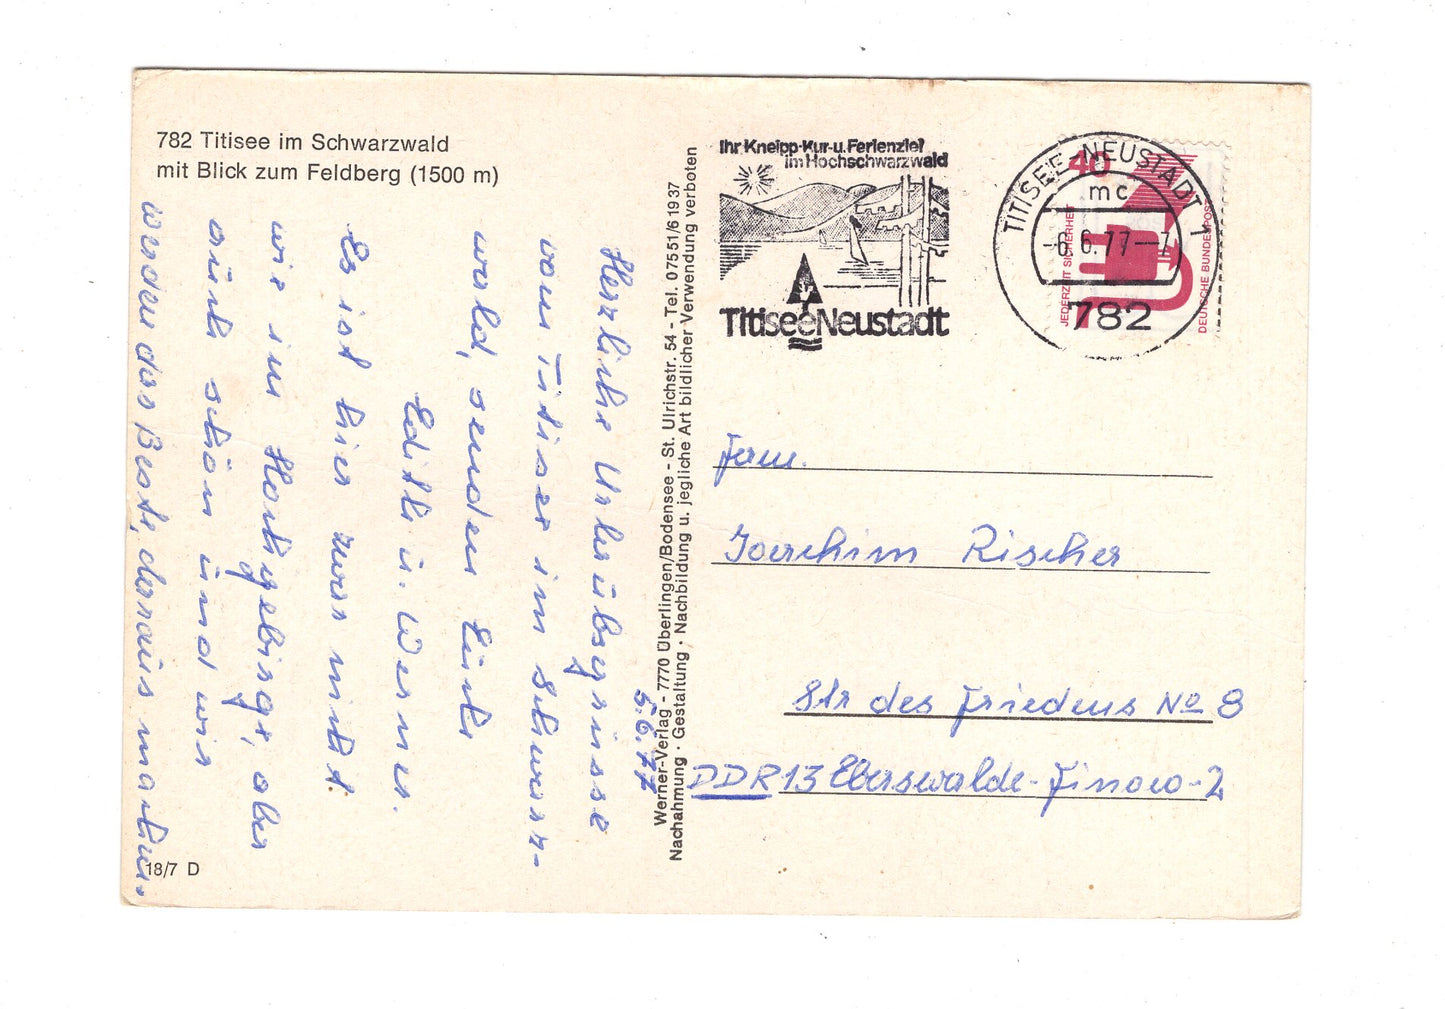 782 Titisee im Schwarzwald
mit Blick zum Feldberg (1500 m)
Herzliche Urlaubsgrüsse
vom Titisee im Schwarz-
wald, senden Euch
Edith u. Werner.
Es ist hier zwar nicht
wie im Hochgebirge, aber
auch schön und wir
werden das Beste, daraus machen.
5.6.77
18/7 D
Werner-Verlag - 7770 Überlingen/Bodensee - St. Ulrichstr. 54 - Tel. 07551/61937
Nachahmung · Gestaltung · Nachbildung u. jegliche Art bildlicher Verwendung verboten
Ihr Kneipp-Kur-u. Ferienziel
im Hochschwarzwald
Titisee Neustadt
TITISEE-NEUSTADT 1
mc
-6.6.77--7
782
40
JEDERZEIT SICHERHEIT
DEUTSCHE BUNDESPOST
Fam.
Joachim Rischer
Str des Friedens No 8
DDR 13 Eberswalde-Finow-2